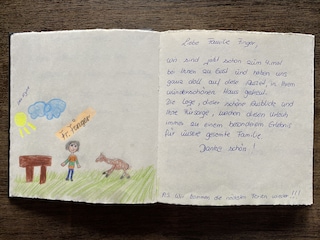 Fr. Unger
Liebe Familie Unger,
wir sind jetzt schon zum 4. mal
bei Ihnen zu Gast und haben uns
ganz doll auf diese Auszeit in Ihrem
wunderschönen Haus gefreut.
Die Lage, dieser schöne Ausblick und
Ihre Fürsorge, machen diesen Urlaub
immer zu einem besonderen Erlebnis
für unsere gesamte Familie.
Danke schön!
P.S. Wir kommen die nächsten Ferien wieder!!!